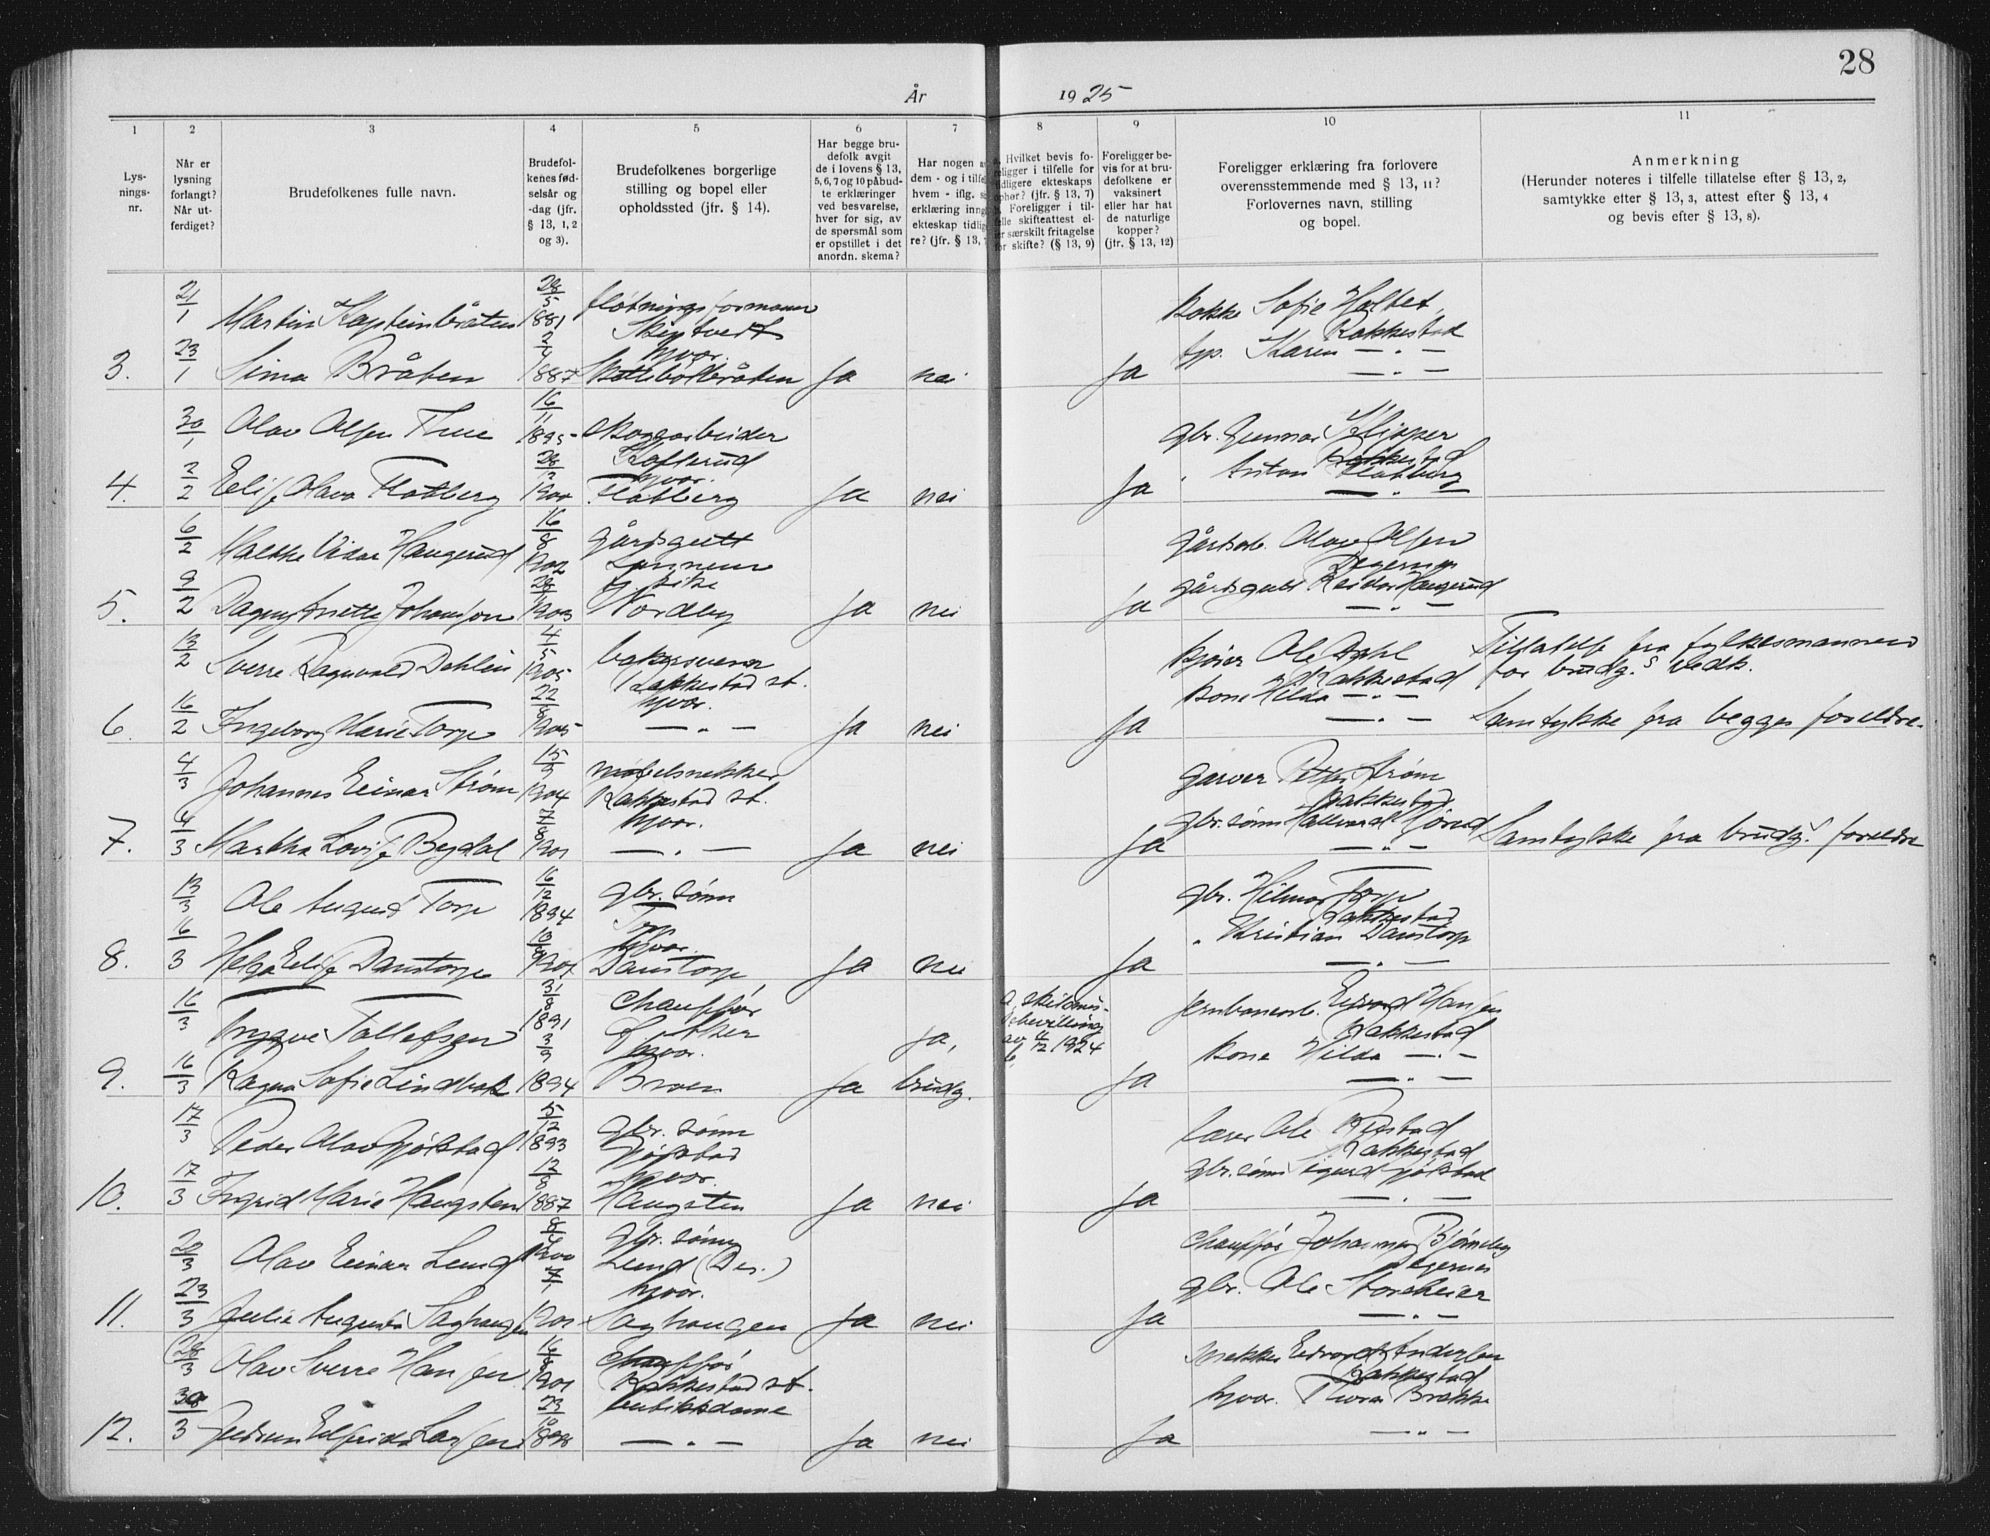 28
År 1925
1 2 3 4 5 6 7 8 9 10 11
Lys-
nings-
nr.
Når er
lysning
forlangt?
Når ut-
ferdiget?
Brudefolkenes fulle navn.
Brudefol-
kenes fød-
selsår og
-dag (jfr.
§ 13, 1, 2
og 3).
Brudefolkenes borgerlige
stilling og bopel eller
opholdssted (jfr. § 14).
Har begge bru-
defolk avgit
de i lovens § 13,
5, 6, 7 og 10 påbud-
te erklæringer
ved besvarelse,
hver for sig, av
de spørsmål som
er opstillet i det
anordn. skema?
Har nogen
dem - og i tilfe
hvem - iflg.
erklæring inng
ekteskap tidlig
re? (jfr. § 13,
Hvilket bevis fo-
religger i tilfelle for
tidligere ekteskaps
ophør? (jfr. § 13, 7)
Foreligger i til-
felle skifteattest el-
ler særskilt fritagelse
for skifte? (§ 13, 9)
Foreligger be-
vis for at bru-
defolkene er
vaksinert
eller har hat
de naturlige
kopper?
(jfr. § 13, 12)
Foreligger erklæring fra forlovere
overensstemmende med § 13, 11?
Forlovernes navn, stilling
og bopel.
Anmerkning
(Herunder noteres i tilfelle tillatelse efter § 13, 2,
samtykke efter § 13, 3, attest efter § 13, 4
og bevis efter § 13, 8).
21/1 Martin Kapteinbråten 28/5 1881 fløtningsformann Skiptvedt Kokke Sofie Holtet Rakkestad
3. 23/1 Sina Bråten 2/4 1887 hjvær. Ja nei Ja typ. Karen — „ —
30/1 Olav Olsen Thue 16/11 1895 skogsarbeider gbr. Gunnar Klipper Rakkestad
4. 2/2 Flatberg 1900 hjvær. Flatberg Ja nei Ja „ Anton Flatberg — „ —
6/2 Vidar Haugerud 16/8 1902 gårdsgutt gårdsarb. Olav Olsen Degernes
5. 9/2 Dagny Anette Johansen 1903 pike Nordby Ja nei Ja gårdsgutt Reidar Haugerud — „ —
13/2 Sverre Ragnvald Dahlin 4/5 1905 bakersvenn Rakkestad st. kjører Ole Dahl Rakkestad Tillatelse fra fylkesmannen
for brudg.s vedk.
6. 16/2 Ingeborg Marie Torp 22/8 1905 hjvær. — „ — Ja nei Ja kone Hilda — „ — Samtykke fra begges foreldre.
4/3 Johannes Einar Strøm 15/9 1904 møbelsnekker Rakkestad st. garver Peter Strøm Rakkestad
7. 4/3 Martha Lovise Bøgdal 7/8 1901 hjvær. — „ — Ja nei Ja gbr. sønn Hallvard — „ — Samtykke fra brudg.s foreldre
13/3 Ole August Torp 16/12 1894 gbr. sønn Torp gbr. Hilmar Torp Rakkestad
8. 16/3 Helga Elise Danstorp hjvær. Danstorp Ja nei Ja „ Kristian Danstorp — „ —
16/3 Trygve Tollefsen 31/8 1891 chauffør ja, a. skilsmis-
bevilling
av 4/12 1924
b. Jernbanearb. Edvard Hansen Rakkestad
9. 16/3 Ragna Sofie Lindbak 3/9 1894 hjvær. Ja brudg. Ja kone Hilda — „ —
17/3 Peder Olav Gjølstad 5/12 1893 gbr. sønn Gjølstad lærer Ole Rakkestad
10. 17/3 Ingrid Marie Haugsten 12/8 1887 hjvær. Haugsten Ja nei Ja gbr. sønn Sigurd Gjølstad — „ —
20/3 Olav Einar Lund 8/4 1900 gbr. sønn Lund (Deg.) chauffør Johannes Bjørneby Degernes
11. 23/3 Julie Augusta Saghaugen 7/1 1901 hjvær. Saghaugen Ja nei Ja gbr. Ole Storeheier — „ —
28/3 Olav Sverre Hansen 16/8 1901 chauffør Rakkestad st. snekker Edvard Andersen Rakkestad
12. 30/3 23/10 1898 butikkdame — „ — Ja nei Ja hjvær. Thora Brekke — „ —